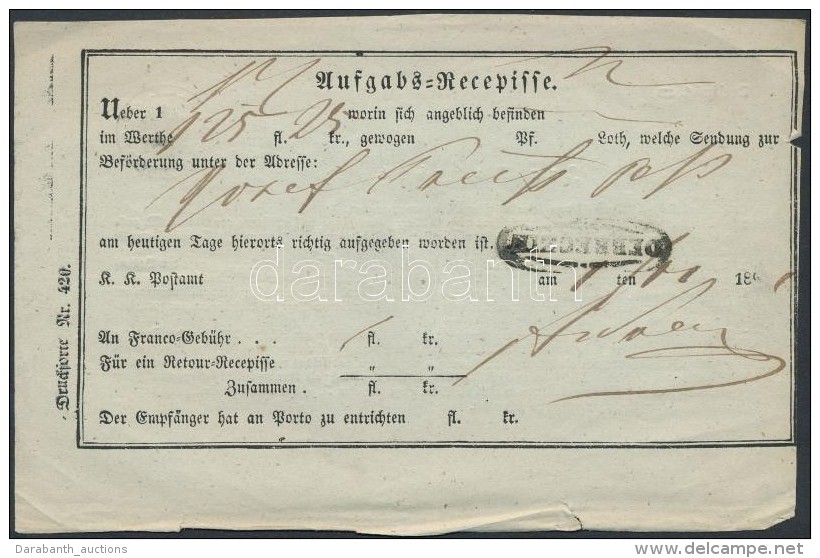 Aufgabs=Recepisse.
Ueber 1 worin sich angeblich befinden
im Werthe 125 fl. 25 kr., gewogen Pf. Loth, welche Sendung zur
Beförderung unter der Adresse:
Josef
am heutigen Tage hierorts richtig aufgegeben worden ist. DEBRECZIN
K. K. Postamt am ten 186
An Franco=Gebühr . . . fl. kr.
Für ein Retour=Recepisse „ „
Zusammen . fl. kr.
Der Empfänger hat an Porto zu entrichten fl. kr.
Drucksorte Nr. 420.
Darabanth_auctions
delcampe.net